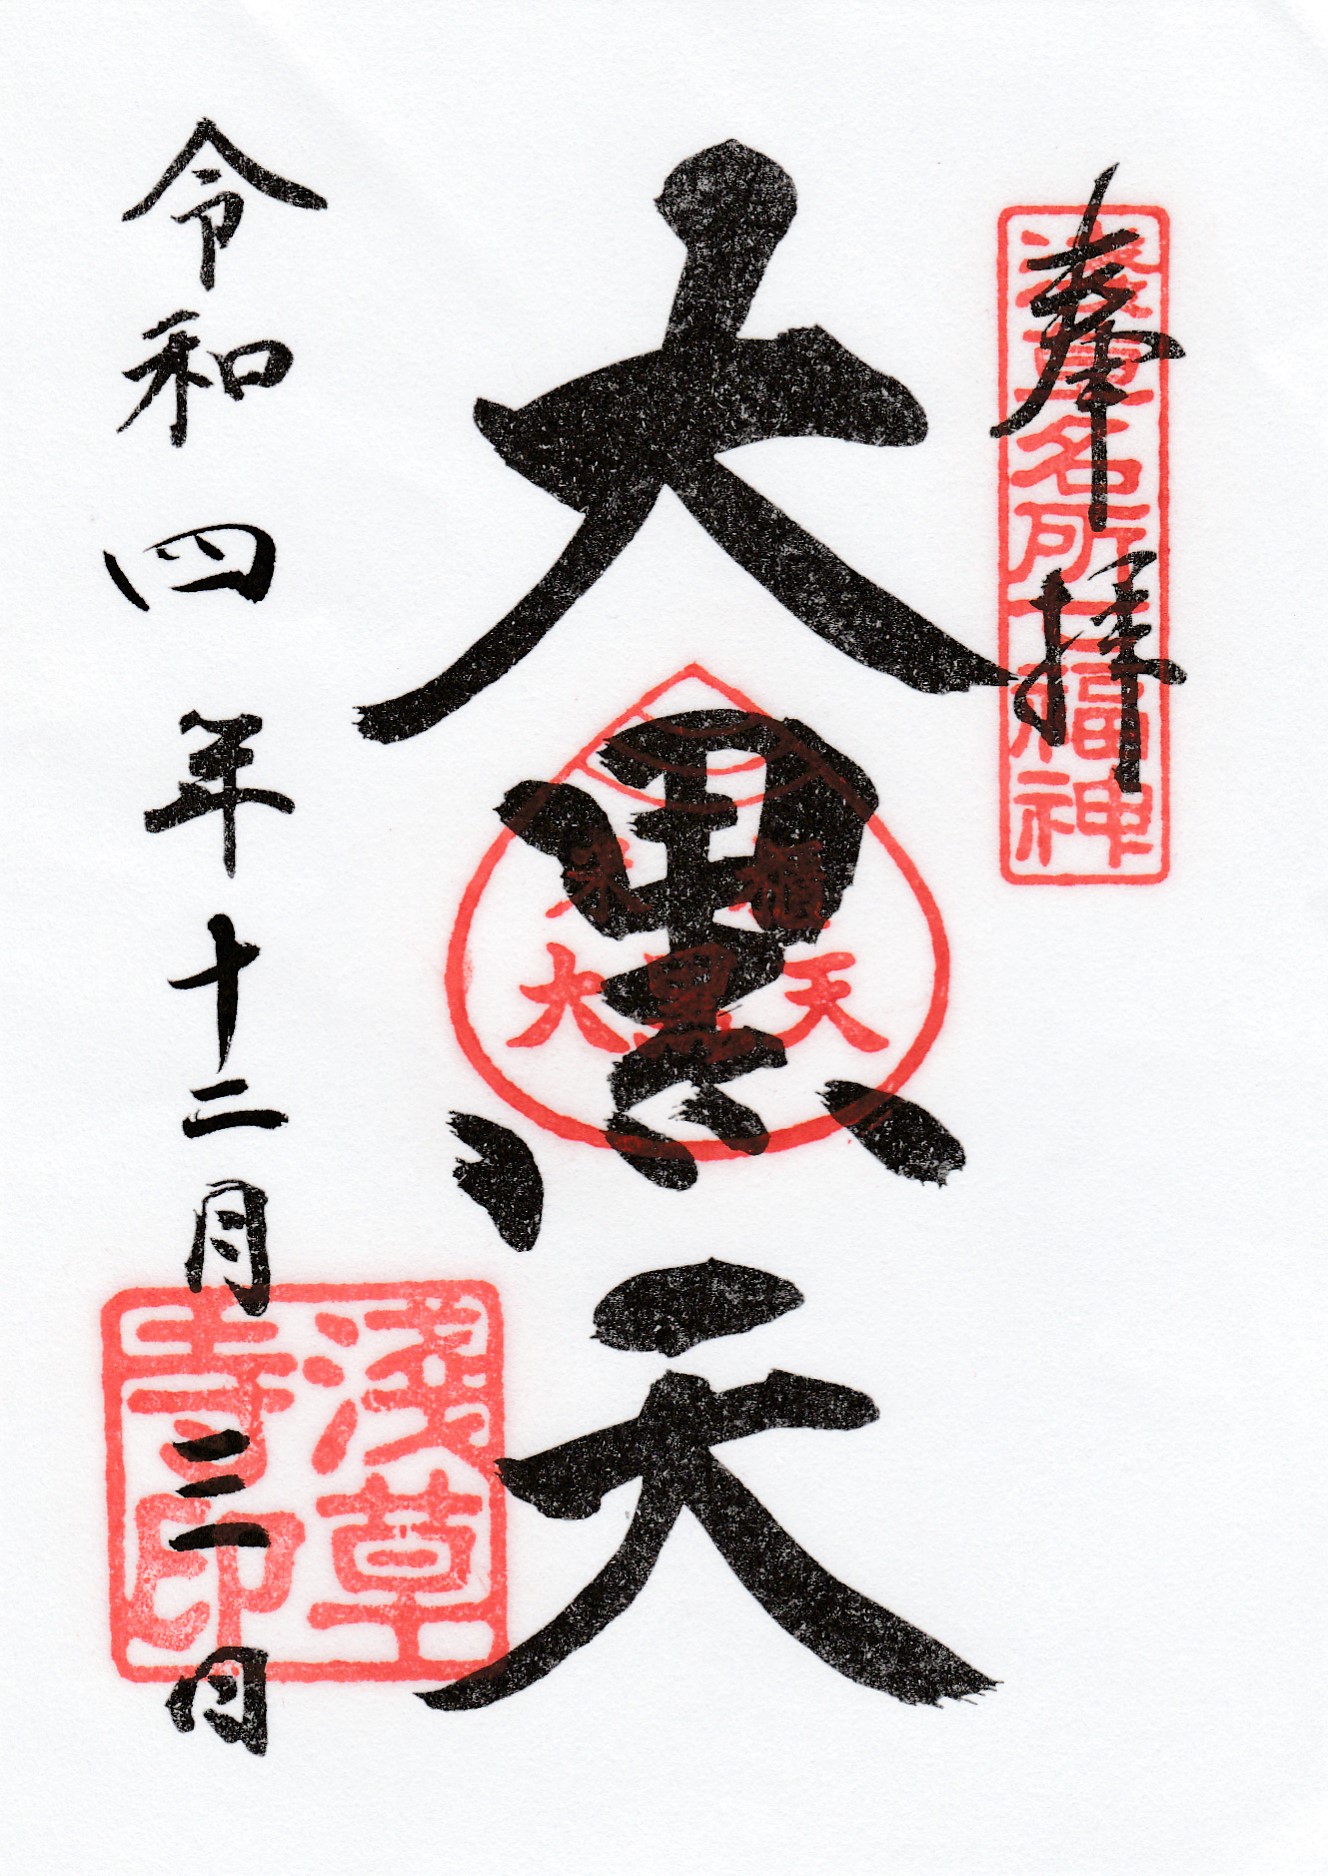 奉拝
浅草名所七福神
大黒天
米櫃
大黒天
令和四年十二月三一日
淺草
寺印